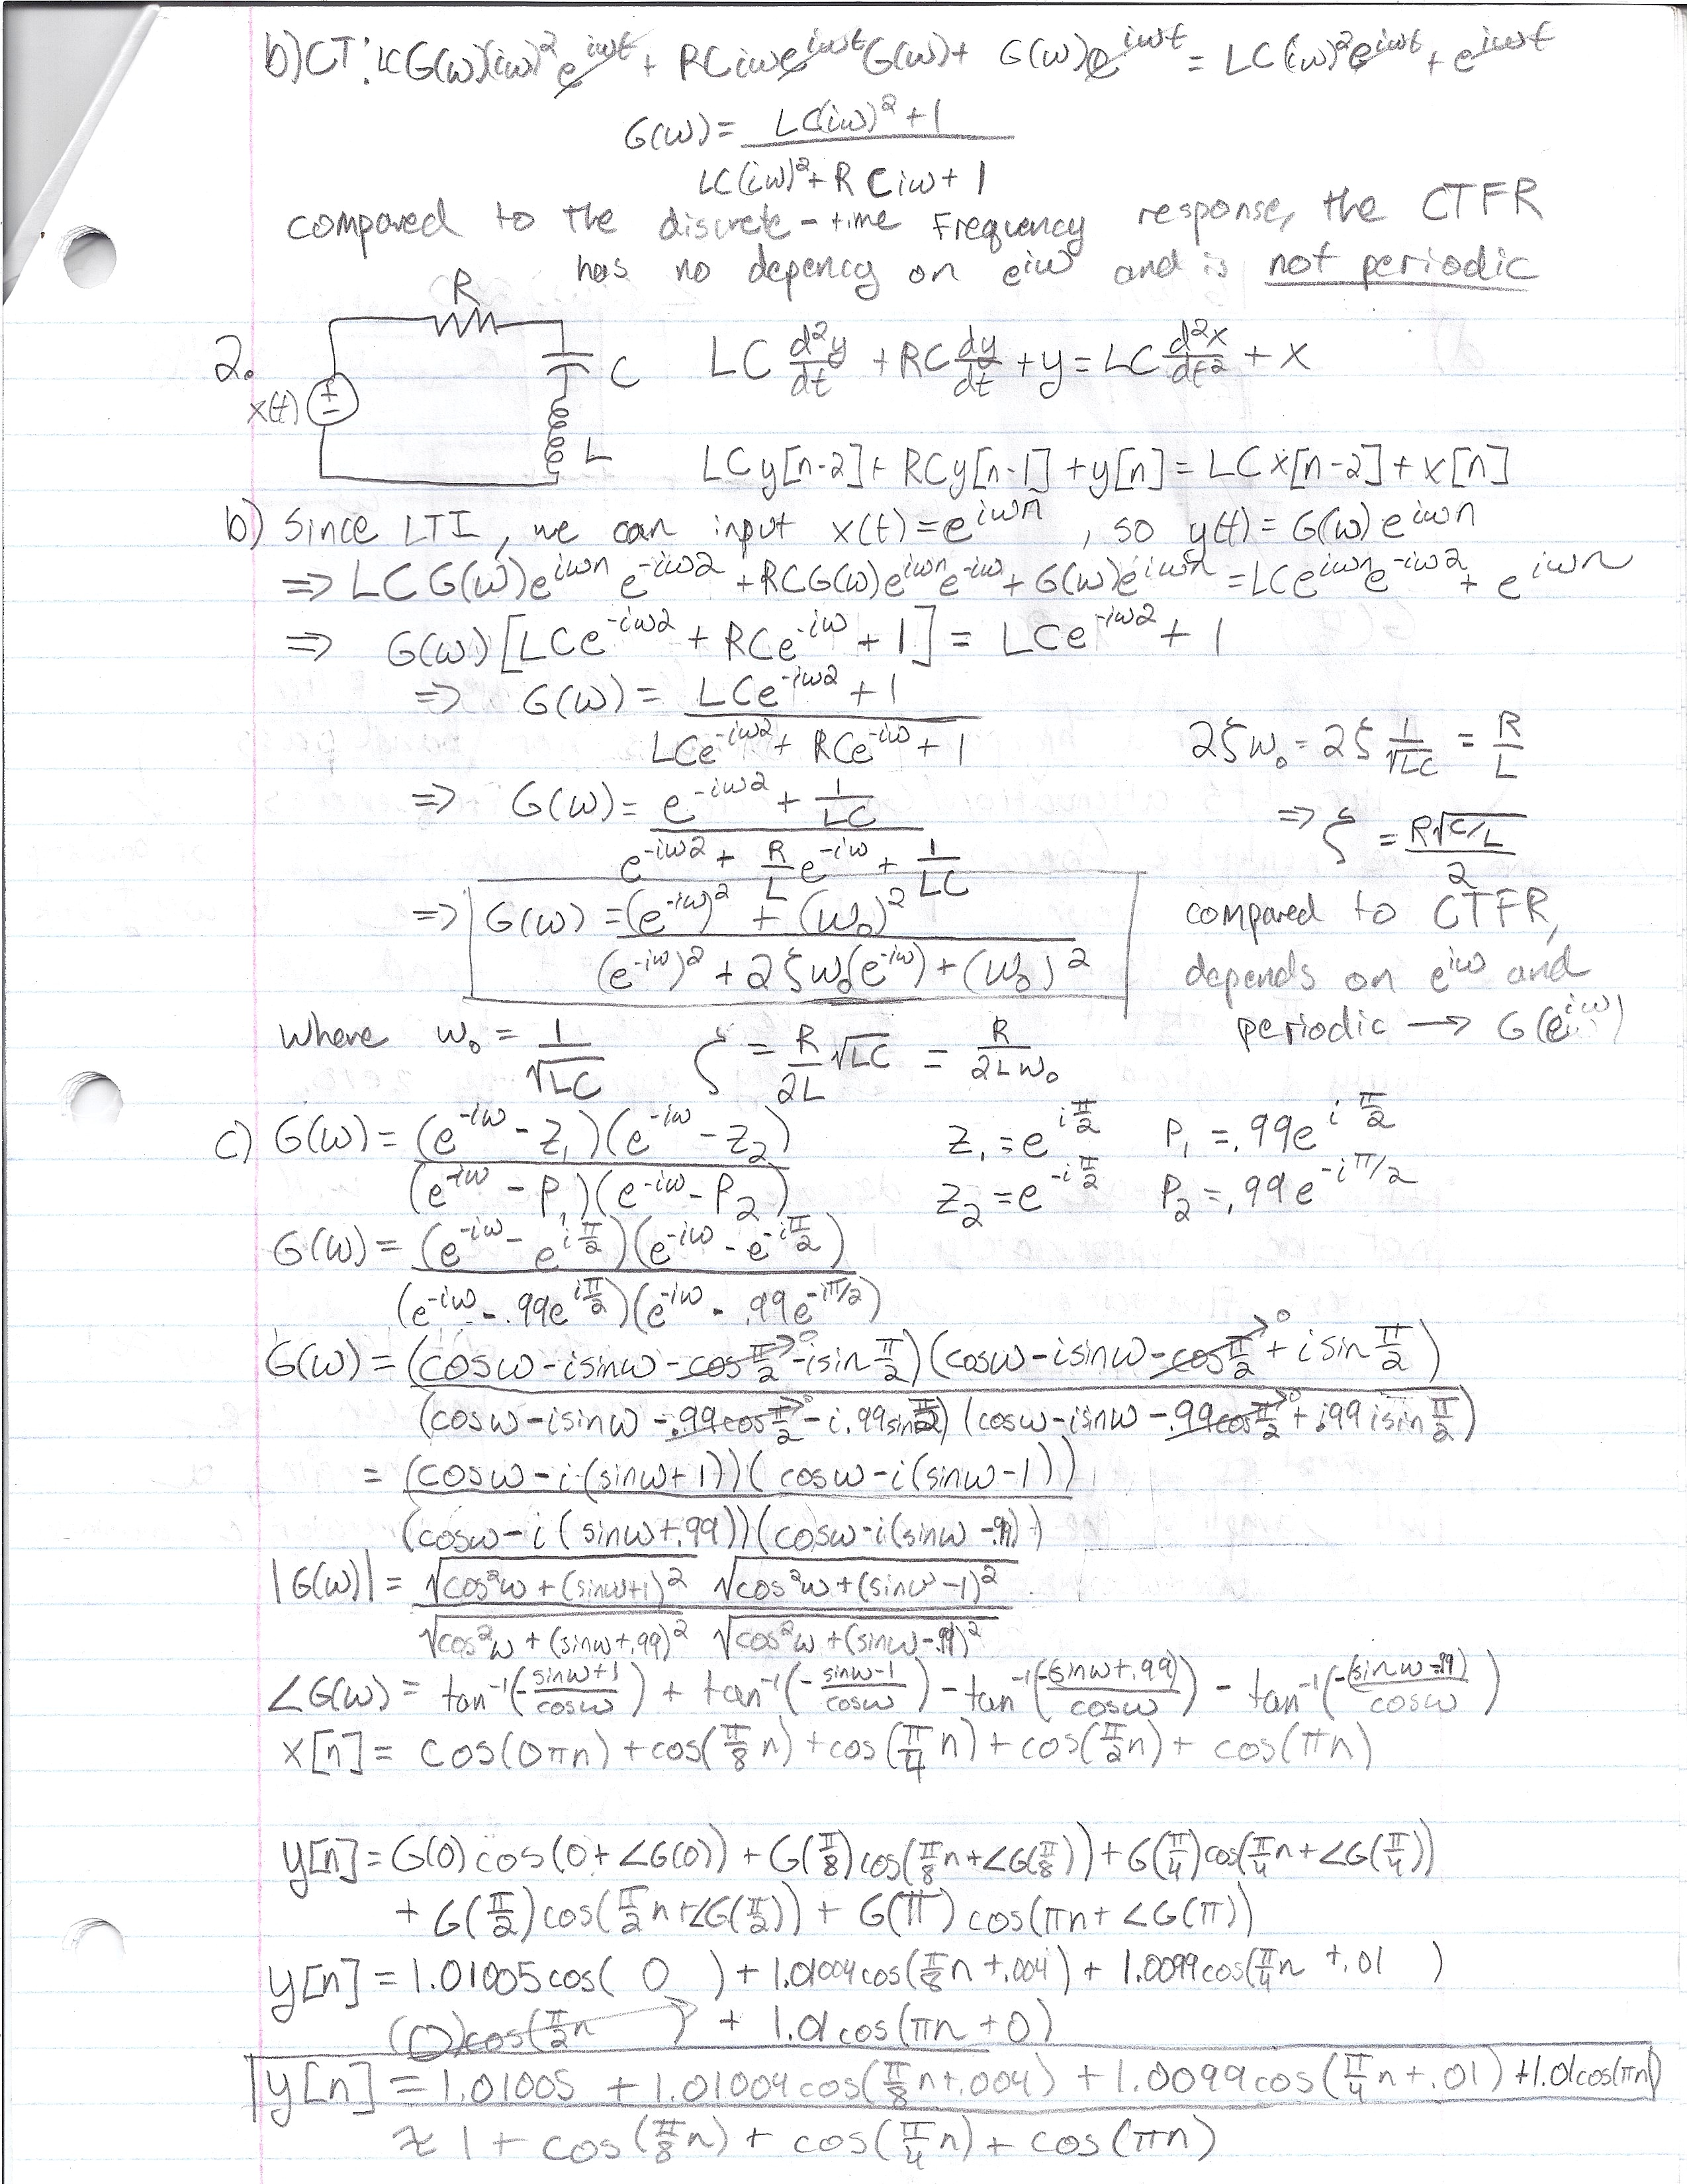 b) CT: LCG(ω)(iω)² e^{iωt} + RCiωe^{iωt}G(ω) + G(ω)e^{iωt} = LC(iω)²e^{iωt} + e^{iωt}
G(ω) = LC(iω)² + 1
LC(iω)² + RCiω + 1
compared to the discrete-time Frequency response, the CTFR
has no depency on e^{iω} and is not periodic
R
2.
LC d²y/dt + RC dy/dt + y = LC d²x/dt² + x
C
x(t)
+
-
L
LCy[n-2] + RCy[n-1] + y[n] = LCx[n-2] + x[n]
b) Since LTI, we can input x(t) = e^{iωn}, so y(t) = G(ω)e^{iωn}
⇒ LCG(ω)e^{iωn}e^{-iω2} + RCG(ω)e^{iωn}e^{-iω} + G(ω)e^{iωn} = LCe^{iωn}e^{-iω2} + e^{iωn}
⇒ G(ω)[LCe^{-iω2} + RCe^{-iω} + 1] = LCe^{-iω2} + 1
⇒ G(ω) = LCe^{-iω2} + 1
LCe^{-iω2} + RCe^{-iω} + 1
2ζω₀ = 2ζ 1/√LC = R/L
⇒ G(ω) = e^{-iω2} + 1/LC
e^{-iω2} + R/L e^{-iω} + 1/LC
⇒ ζ = R√C/L
2
⇒ G(ω) = (e^{-iω})² + (ω₀)²
(e^{-iω})² + 2ζω₀(e^{-iω}) + (ω₀)²
compared to CTFR,
depends on e^{iω} and
periodic → G(e^{iω})
where ω₀ = 1/√LC ζ = R/2L √LC = R/2Lω₀
c) G(ω) = (e^{-iω} - z₁)(e^{-iω} - z₂)
(e^{-iω} - p₁)(e^{-iω} - p₂)
z₁ = e^{iπ/2} p₁ = .99e^{iπ/2}
z₂ = e^{-iπ/2} p₂ = .99e^{-iπ/2}
G(ω) = (e^{-iω} - e^{iπ/2})(e^{-iω} - e^{-iπ/2})
(e^{-iω} - .99e^{iπ/2})(e^{-iω} - .99e^{-iπ/2})
G(ω) = (cosω - isinω - cosπ/2→0 - isinπ/2)(cosω - isinω - cosπ/2→0 + isinπ/2)
(cosω - isinω - .99cosπ/2→0 - i.99sinπ/2)(cosω - isinω - .99cosπ/2→0 + .99isinπ/2)
= (cosω - i(sinω+1))(cosω - i(sinω-1))
(cosω - i(sinω+.99))(cosω - i(sinω-.99))
|G(ω)| = √cos²ω + (sinω+1)² √cos²ω + (sinω-1)²
√cos²ω + (sinω+.99)² √cos²ω + (sinω-.99)²
∠G(ω) = tan⁻¹(-sinω+1/cosω) + tan⁻¹(-sinω-1/cosω) - tan⁻¹(-(sinω+.99)/cosω) - tan⁻¹(-(sinω-.99)/cosω)
x[n] = cos(0πn) + cos(π/8 n) + cos(π/4 n) + cos(π/2 n) + cos(πn)
y[n] = G(0)cos(0+∠G(0)) + G(π/8)cos(π/8 n+∠G(π/8)) + G(π/4)cos(π/4 n+∠G(π/4))
+ G(π/2)cos(π/2 n+∠G(π/2)) + G(π)cos(πn+∠G(π))
y[n] = 1.01005cos( 0 ) + 1.01004cos(π/8 n+.004) + 1.0099cos(π/4 n +.01 )
(0)cos(π/2 n ) + 1.01cos(πn+0)
y[n] = 1.01005 + 1.01004cos(π/8 n+.004) + 1.0099cos(π/4 n+.01) + 1.01cos(πn)
≈ 1 + cos(π/8 n) + cos(π/4 n) + cos(πn)